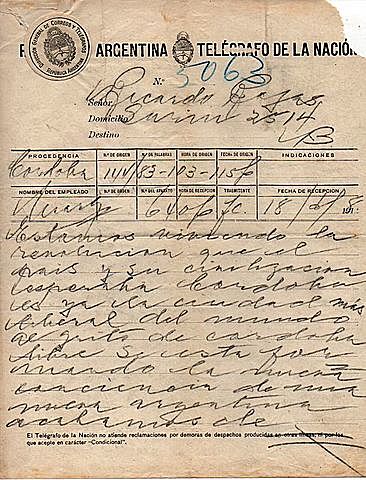 R ARGENTINA TELÉGRAFO DE LA NACIÓN
DIRECCIÓN GENERAL DE CORREOS Y TELÉGRAFOS
REPÚBLICA ARGENTINA
N.º 5063
Señor Ricardo Rojas
Domicilio 2514
Destino B
PROCEDENCIA N.º DE ORIGEN N.º DE PALABRAS HORA DE ORIGEN FECHA DE ORIGEN INDICACIONES
Cordoba 83
NOMBRE DEL EMPLEADO N.º DEL APARATO HORA DE RECEPCIÓN TRASMITENTE FECHA DE RECEPCIÓN
18
Estamos viviendo la
revolucion que el
pais y su civilizacion
esperaban Cordoba
es ya la ciudad mas
liberal del mundo
al grito de cordoba
libre se esta for
mando la nueva
conciencia de una
nueva argentina
acabamos de
El Telégrafo de la Nación no atiende reclamaciones por demoras de despachos producidos en otras líneas, ni por los
que acepte en carácter "Condicional".